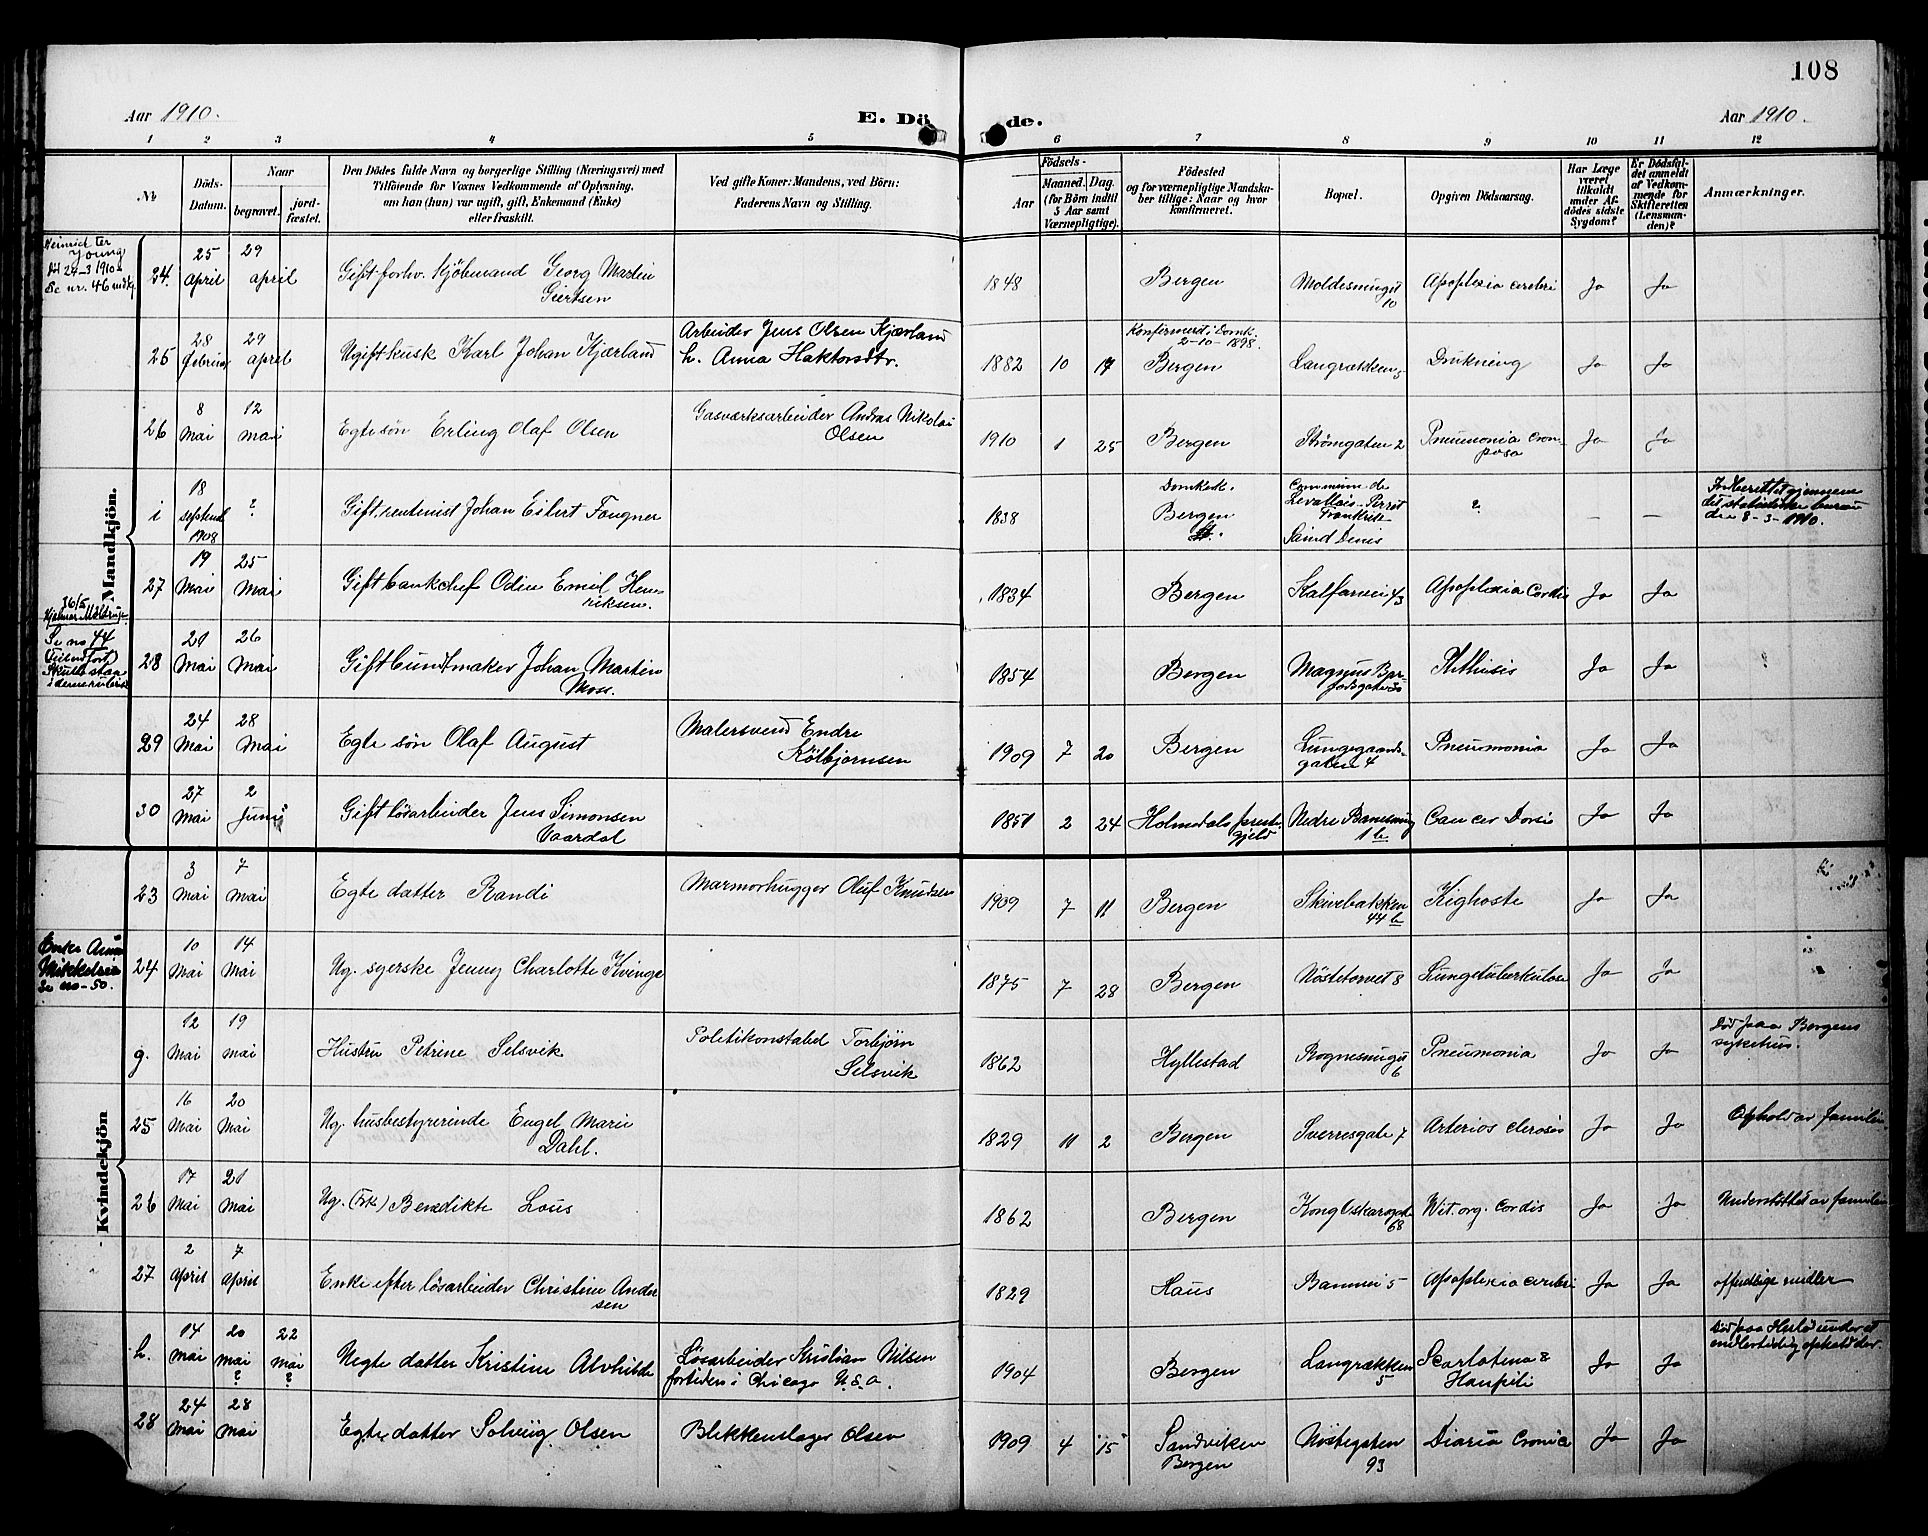 108
Aar 1910.
E. Dö
de.
Aar 1910.
1 2 3 4 5 6 7 8 9 10 11 12
№
Döds-
Datum.
Naar
begravet.
jord-
fæstet.
Den Dödes fulde Navn og borgerlige Stilling (Næringsvei) med
Tilföiende for Voxnes Vedkommende af Oplysning,
om han (hun) var ugift, gift, Enkemand (Enke)
eller fraskilt.
Ved gifte Koner: Mandens, ved Börn:
Faderens Navn og Stilling.
Födsels-
Aar
Maaned. Dag.
(for Börn indtil
5 Aar samt
Værnepligtige).
Födested
og for værnepligtige Mandska-
ber tillige: Naar og hvor
konfirmeret.
Bopæl.
Opgiven Dödsaarsag.
Har Læge
været
tilkaldt
under Af-
dödes sidste
Sygdom?
Er Dödsfal-
det anmeldt
af Vedkom-
mende for
Skifteretten
(Lensman-
den)?
Anmærkninger.
Mandkjön.
Heinrich ter
Young
24-3 1910
Se nr. 46
24. 25 April 29 april Gift forhv. Kjöbmand Georg Martin
Giertsen
1848 Bergen Moldesmuget
10 Apoplexia cerebri Ja Ja
25 28 Februar 29 april Ugift kusk Karl Johan Kjærland
Arbeider Jens Olsen Kjærland
h. Anna Haktorsdtr.
1882 10 17 Konfirmerd i Domk.
2-10-1898.
Bergen Langrækken 5 Drukning Ja Ja
26 8 Mai 12 mai Egte sön Erling Olaf Olsen
Gasværksarbeider Andras Nikolai
Olsen
1910 1 25 Bergen Strömgaten 2 Pneumonia Crou-
posa Ja Ja
i 18 septemb 1908 ? Gift rentenist Johan Eilert Fougner
1838 Domkirk.
Bergen
Commune de
Levallois-Perret
Frankrike
Saind Denis ? — —
Indberettet gjennem
det statistiske bureau
den 8-3-1910.
27 19 Mai 25 Mai Gift bankchef Odin Emil Hen-
riksen.
1834 Bergen Kalfarvei 43 Apoplexia Cordis Ja Ja
26/5
Hjalmar Møldrup
Se no 44
28 21 Mai 26 Mai Gift buntmaker Johan Martin
Moss.
1854 Bergen Magnus Bar-
fodsgate Phthisis Ja Ja
29 24 Mai 28 Mai Egte sön Olaf August
Malersvend Endre
Kolbjørnsen
1909 7 20 Bergen Lungegaards-
gaten 4 Pneumonia Ja Ja
30 27 Mai 2 Juni Gift lösarbeider Jens Simonsen
Vaardal
1851 2 24 Holmedals prest-
gjeld Nedre Banesmug
1 b Cancer Dorsi Ja Ja
Kvindekjön
23 3 Mai 7 mai Egte datter Randi
Marmorhugger Oluf Knudsen
1909 7 11 Bergen Skivebakken
44 b Kighoste Ja Ja
Enke Anna
Mikkelsen
Se no-50.
24 10 Mai 14 Mai Ug. syerske Jenny Charlotte Kvinge
1875 7 28 Bergen Nöstetorvet 8 Lungetuberkulose Ja Ja
g. 12 Mai 19 mai Hustru Petrine Selsvik
Politikonstabel Torbjörn
Selsvik
1862 Hyllestad Rognesmuget
6 Pneumonia Ja Ja
Död paa Bergens
sykehus.
25 16 Mai 20 Mai Ug. husbestyrerinde Engel Marie
Dahl.
1829 11 2 Bergen Sverresgate 7 Arterios clerosis Ja Ja Ophold av familie
26 17 Mai 21 Mai Ug. (Frk) Benedikte Lous
1862 Bergen Kong Oskarsgate
68 Wit. org. Cordis Ja Ja Understöttet av familie
27 2 April 7 April Enke efter lösarbeider Christine Ander
sen
1829 Haus Banevei 5 Apoplexia cerebri Ja Ja offentlige midler
h. 14 Mai 20 mai ? 22 mai ? Uegte datter Kristine Alvhilde
Lösarbeider Kristian Nilsen
fortiden i Chicago U.S.A.
1904 Bergen Langrækken
5 Scarlatina &
Ja Ja
Död paa Herlö under et
midlertidig ophold der.
28 24 Mai 28 Mai Egte datter Solveig Olsen
Blikkenslager Olsen
1909 4 15 Sandviken
Bergen Nöstegaten
93 Diaria Cronica Ja Ja